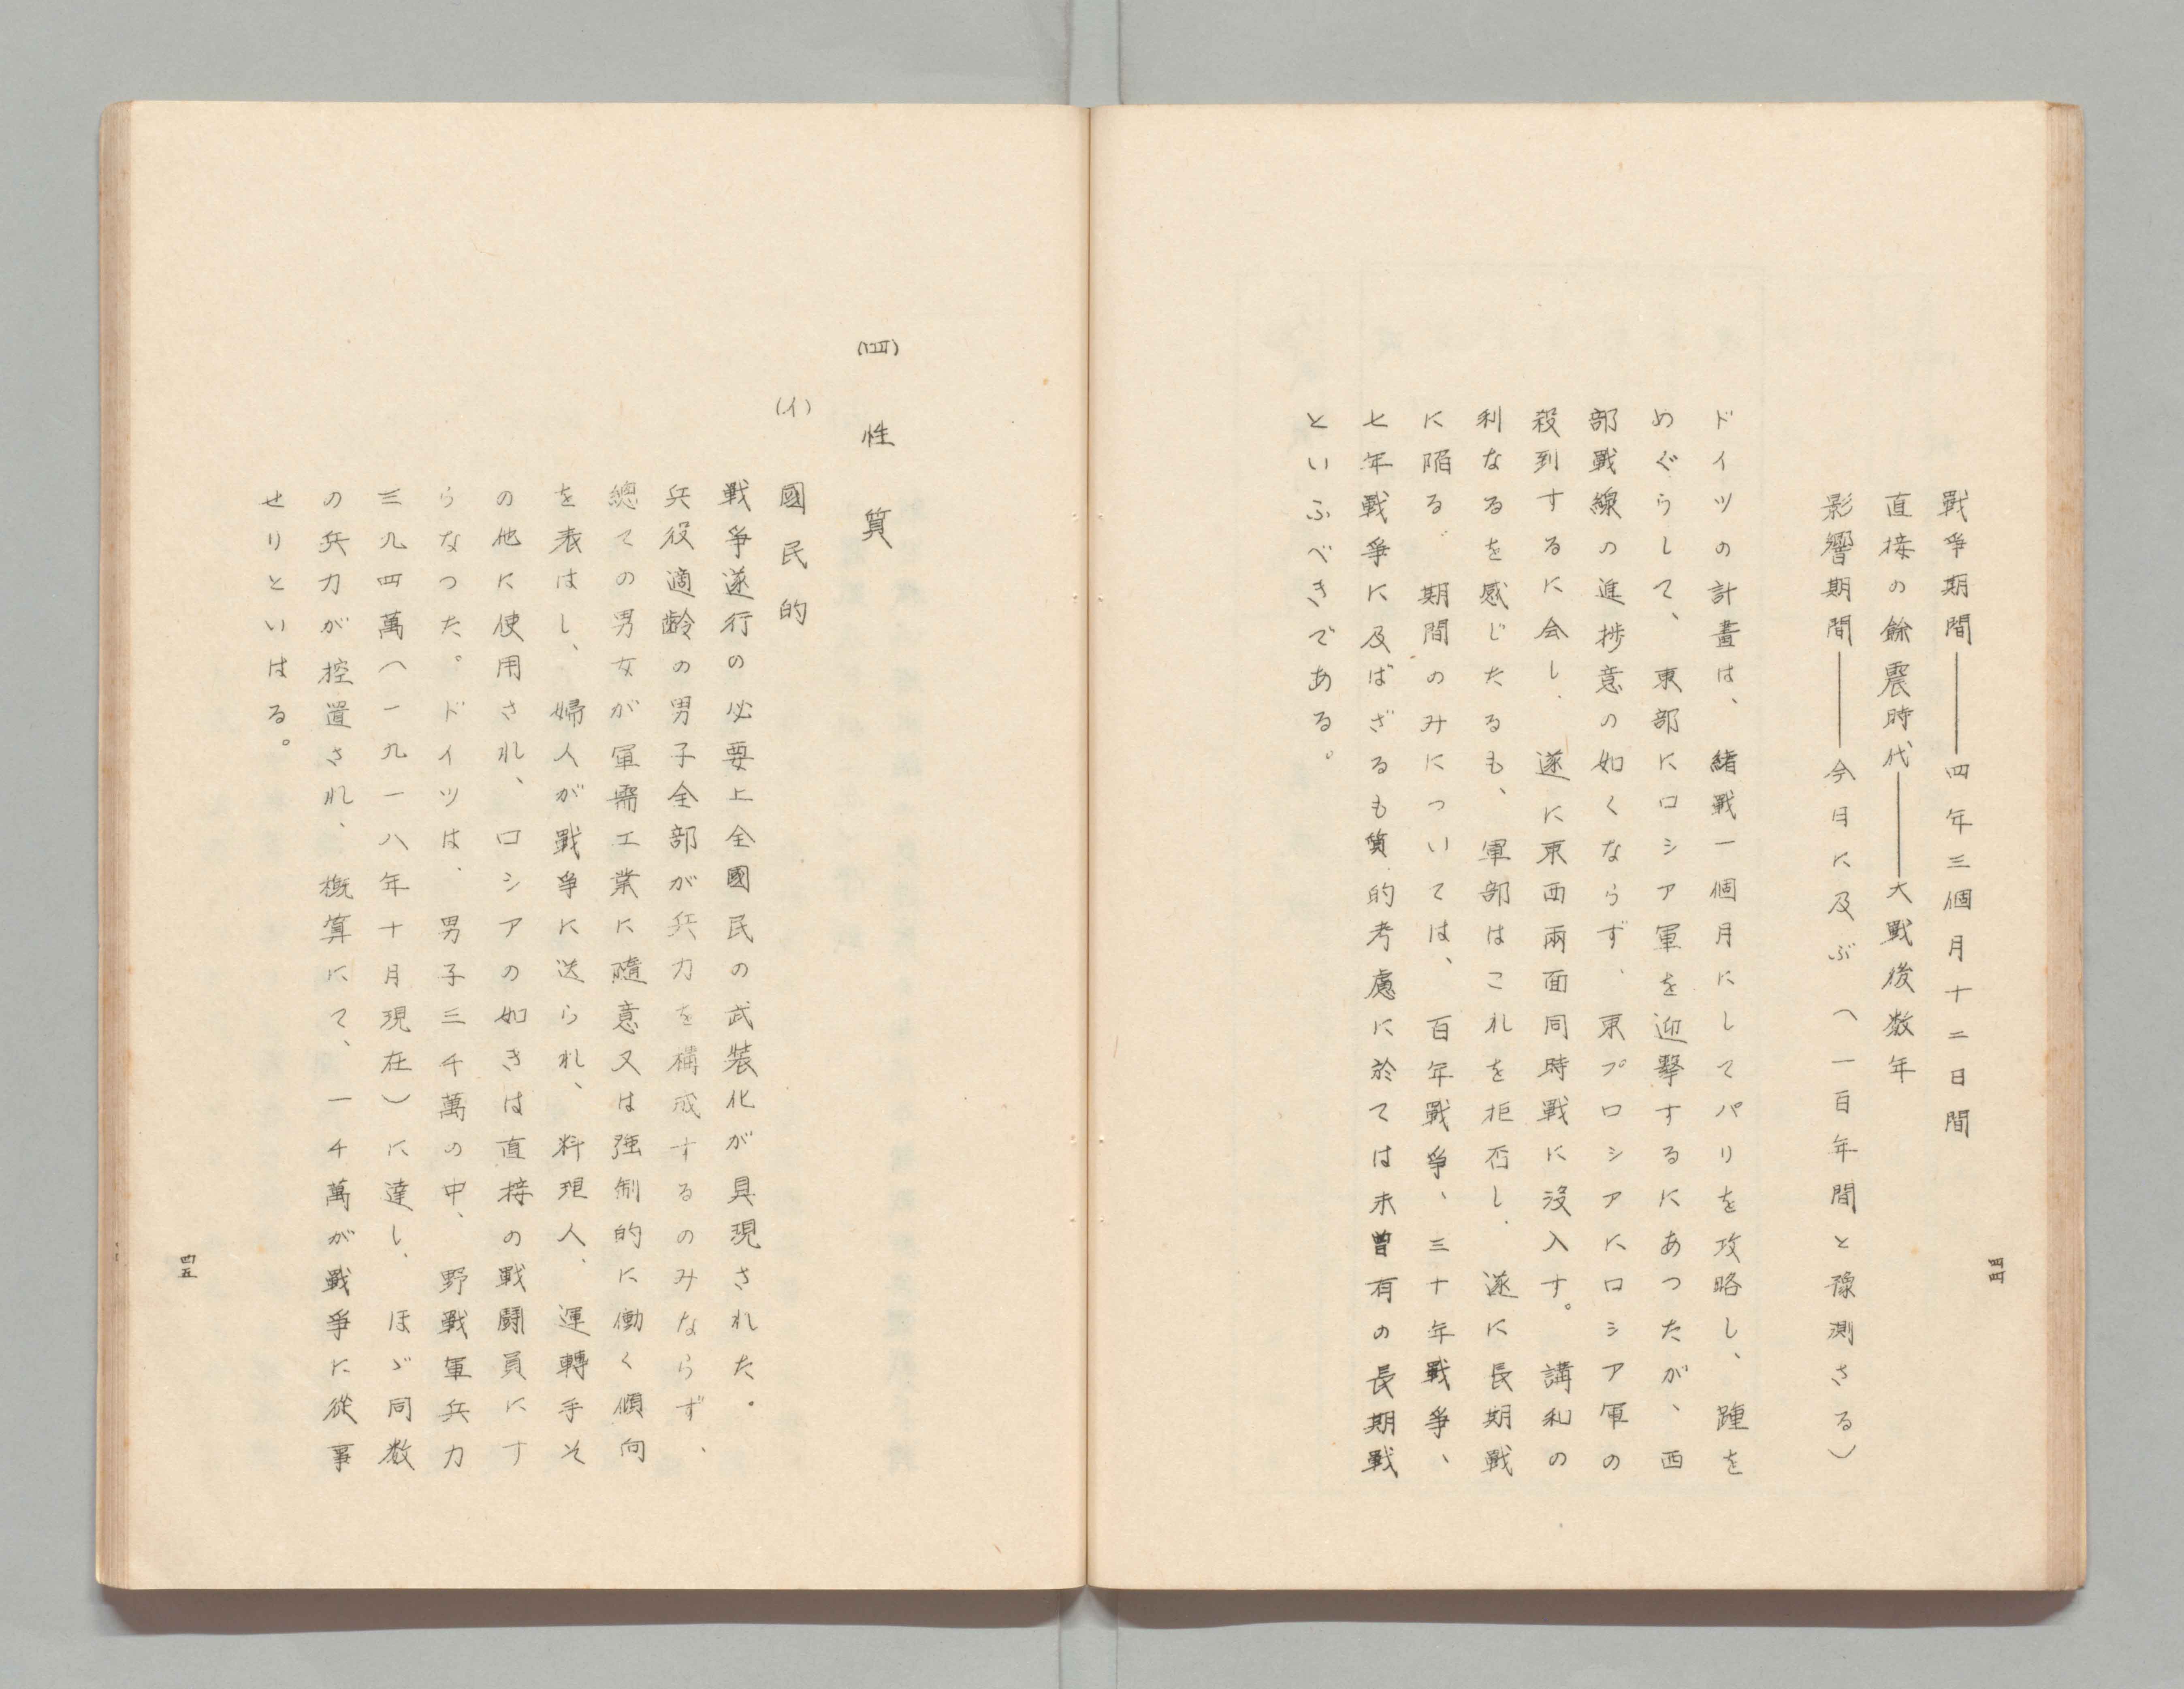 戰爭期間――四年三個月十二日間
直接の餘震時代――大戰後数年
影響期間――今日に及ぶ（一百年間と豫測さる）
ドイツの計畫は、緒戰一個月にしてパリを攻略し、踵を
めぐらして、東部にロシア軍を迎擊するにあつたが、西
部戰線の進捗意の如くならず、東プロシアにロシア軍の
殺到するに会し、遂に東西兩面同時戰に沒入す。講和の
利なるを感じたるも、軍部はこれを拒否し、遂に長期戰
に陷る、期間のみについては、百年戰爭、三十年戰爭、
七年戰爭に及ばざるも質的考慮に於ては未曾有の長期戰
といふべきである。
四四
(四) 性質
(イ) 國民的
戰爭遂行の必要上全國民の武裝化が具現された。
兵役適齡の男子全部が兵力を構成するのみならず、
總ての男女が軍需工業に隨意又は强制的に働く傾向
を表はし、婦人が戰爭に送られ、料理人、運轉手そ
の他に使用され、ロシアの如きは直接の戰鬪員にす
らなつた。ドイツは、男子三千萬の中、野戰軍兵力
三九四萬（一九一八年十月現在）に達し、ほゞ同数
の兵力が控置され、概算にて、一千萬が戰爭に從事
せりといはる。
四五